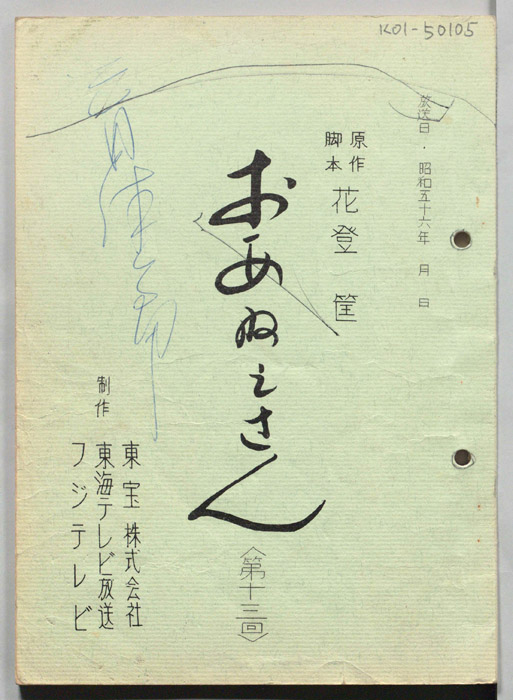 K01-50105
放送日・昭和五十六年 月 日
原作
脚本
花登 筐
おあねえさん
〈第十三回〉
制作
東宝株式会社
東海テレビ放送
フジテレビ